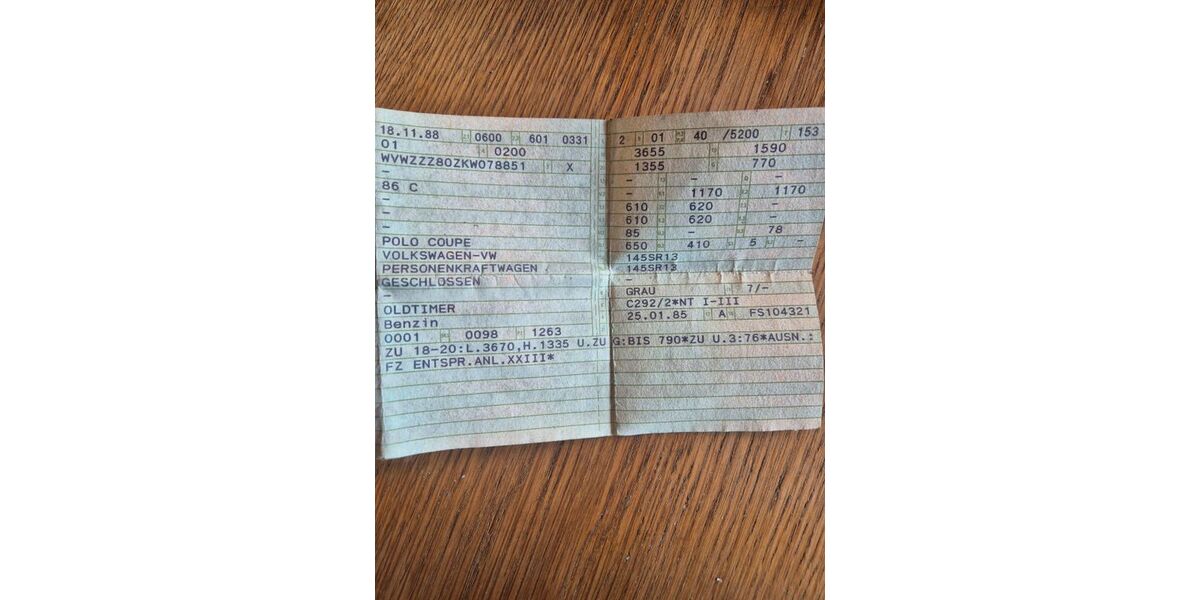 18.11.88 0600 601 0331
01 0200
WVWZZZ80ZKW078851 X
-
86 C
-
-
-
POLO COUPE
VOLKSWAGEN-VW
PERSONENKRAFTWAGEN
GESCHLOSSEN
-
OLDTIMER
Benzin
0001 0098 1263
2 01 40 /5200 153
3655 1590
1355 770
- - -
- 1170 1170
610 620 -
610 620 -
85 - 78
650 410 5 -
145SR13
145SR13
-
GRAU 7/-
C292/2*NT I-III
25.01.85 A FS104321
ZU 18-20:L.3670,H.1335 U.ZU G:BIS 790*ZU U.3:76*AUSN.:
FZ ENTSPR.ANL.XXIII*